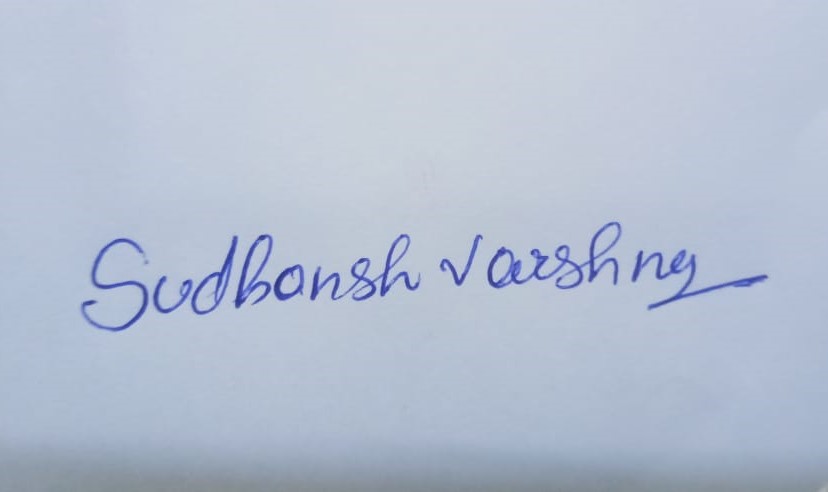 Sudhansh Varshny